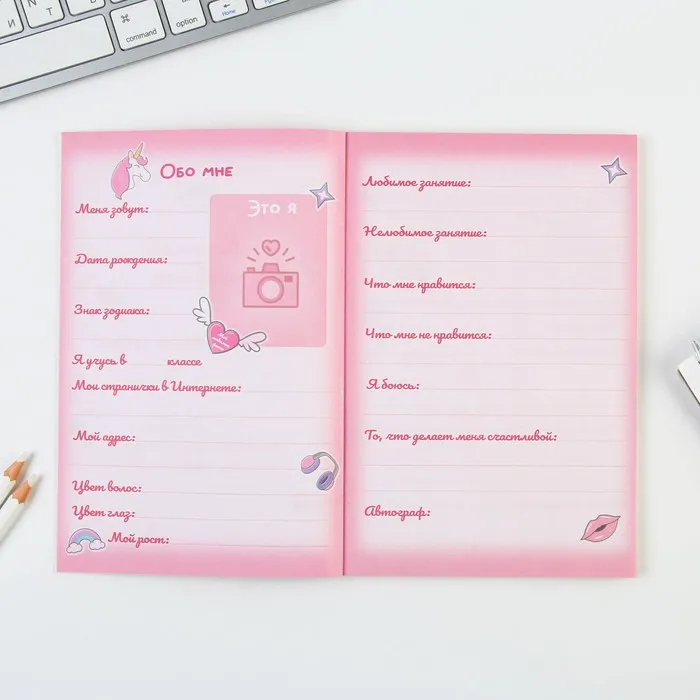 И
Т
Ь
⌘
command
option
Home
Обо мне
Это я
Меня зовут:
Дата рождения:
Знак зодиака:
Я учусь в классе
Мои странички в Интернете:
Мой адрес:
Цвет волос:
Цвет глаз:
Мой рост:
Любимое занятие:
Нелюбимое занятие:
Что мне нравится:
Что мне не нравится:
Я боюсь:
То, что делает меня счастливой:
Автограф: